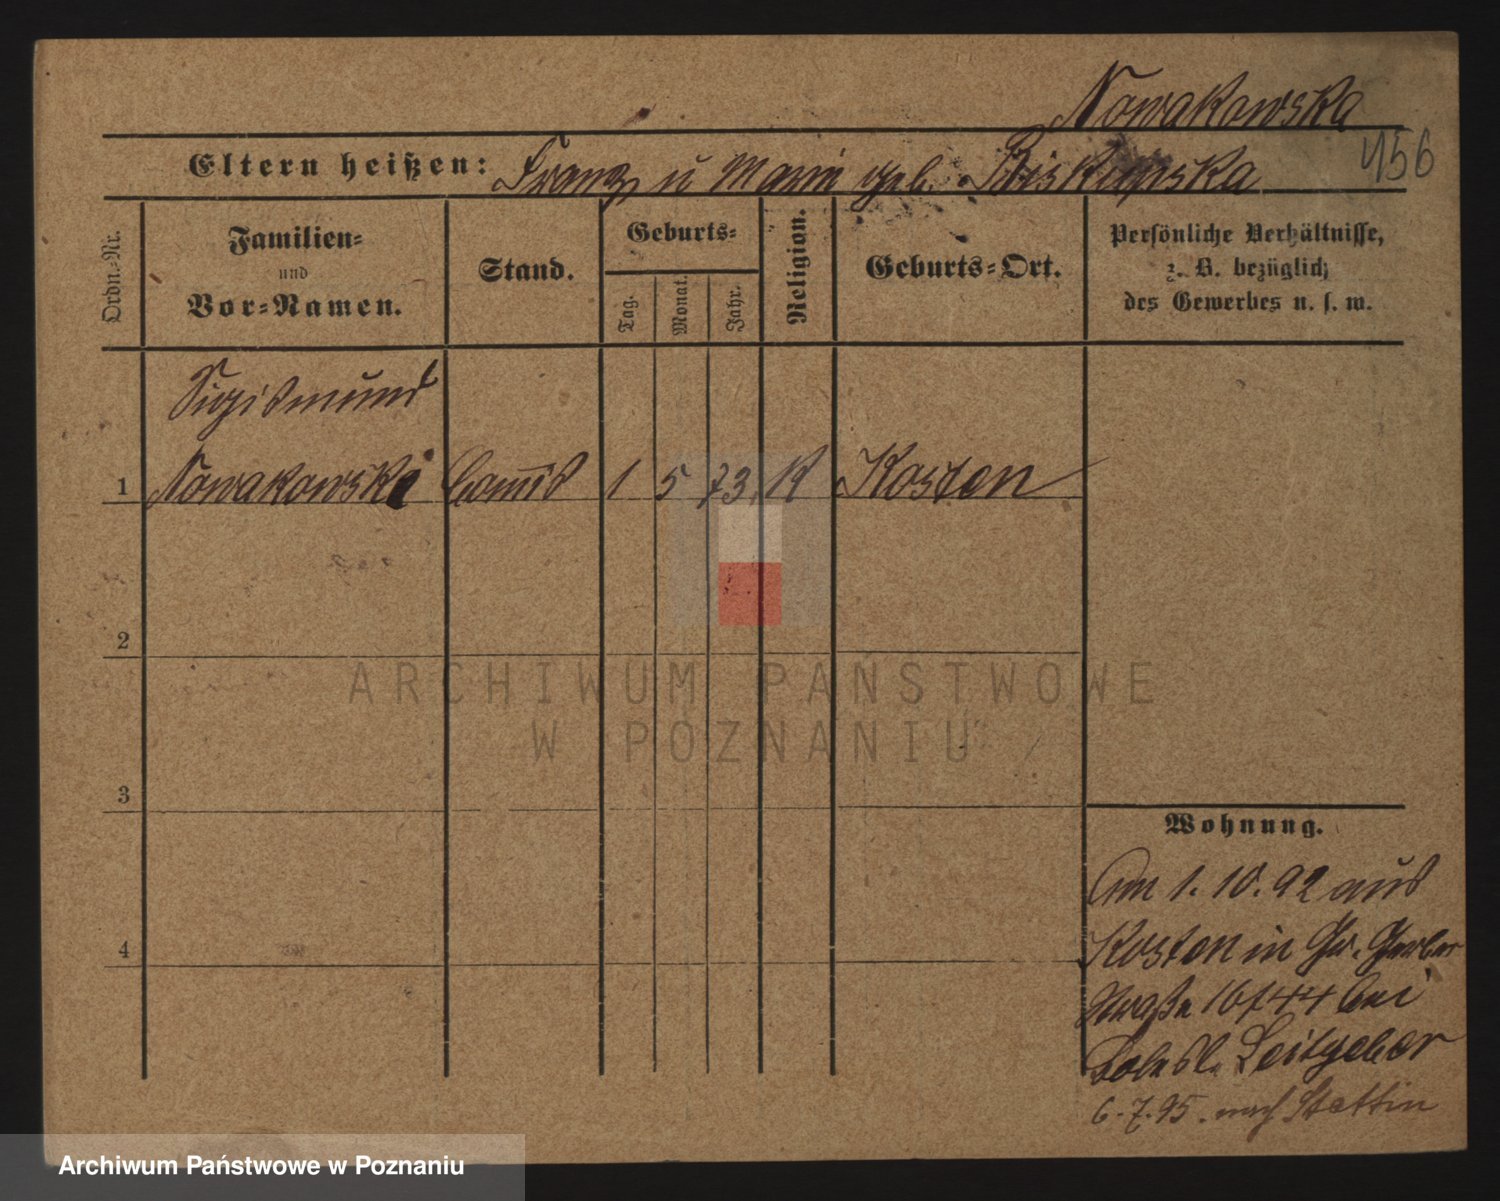 Nowakowska
456
Eltern heißen: Franz u Marie geb. Biskupska
Ordn.-Nr.
Familien-
und
Vor-Namen.
Stand.
Geburts-
Tag.
Monat.
Jahr.
Religion.
Geburts-Ort.
Persönliche Verhältnisse,
z. B. bezüglich
des Gewerbes u. s. w.
Sigismund
1 Nowakowski Commis 1 5 73 K Kosten
2
3
4
ARCHIWUM PAŃSTWOWE
W POZNANIU
Wohnung.
Am 1. 10. 92 aus
Kosten in Gr. Gerber
Straße 16/44 bei
Bolesl. Leitgeber
6. 7. 95. nach Stettin
Archiwum Państwowe w Poznaniu